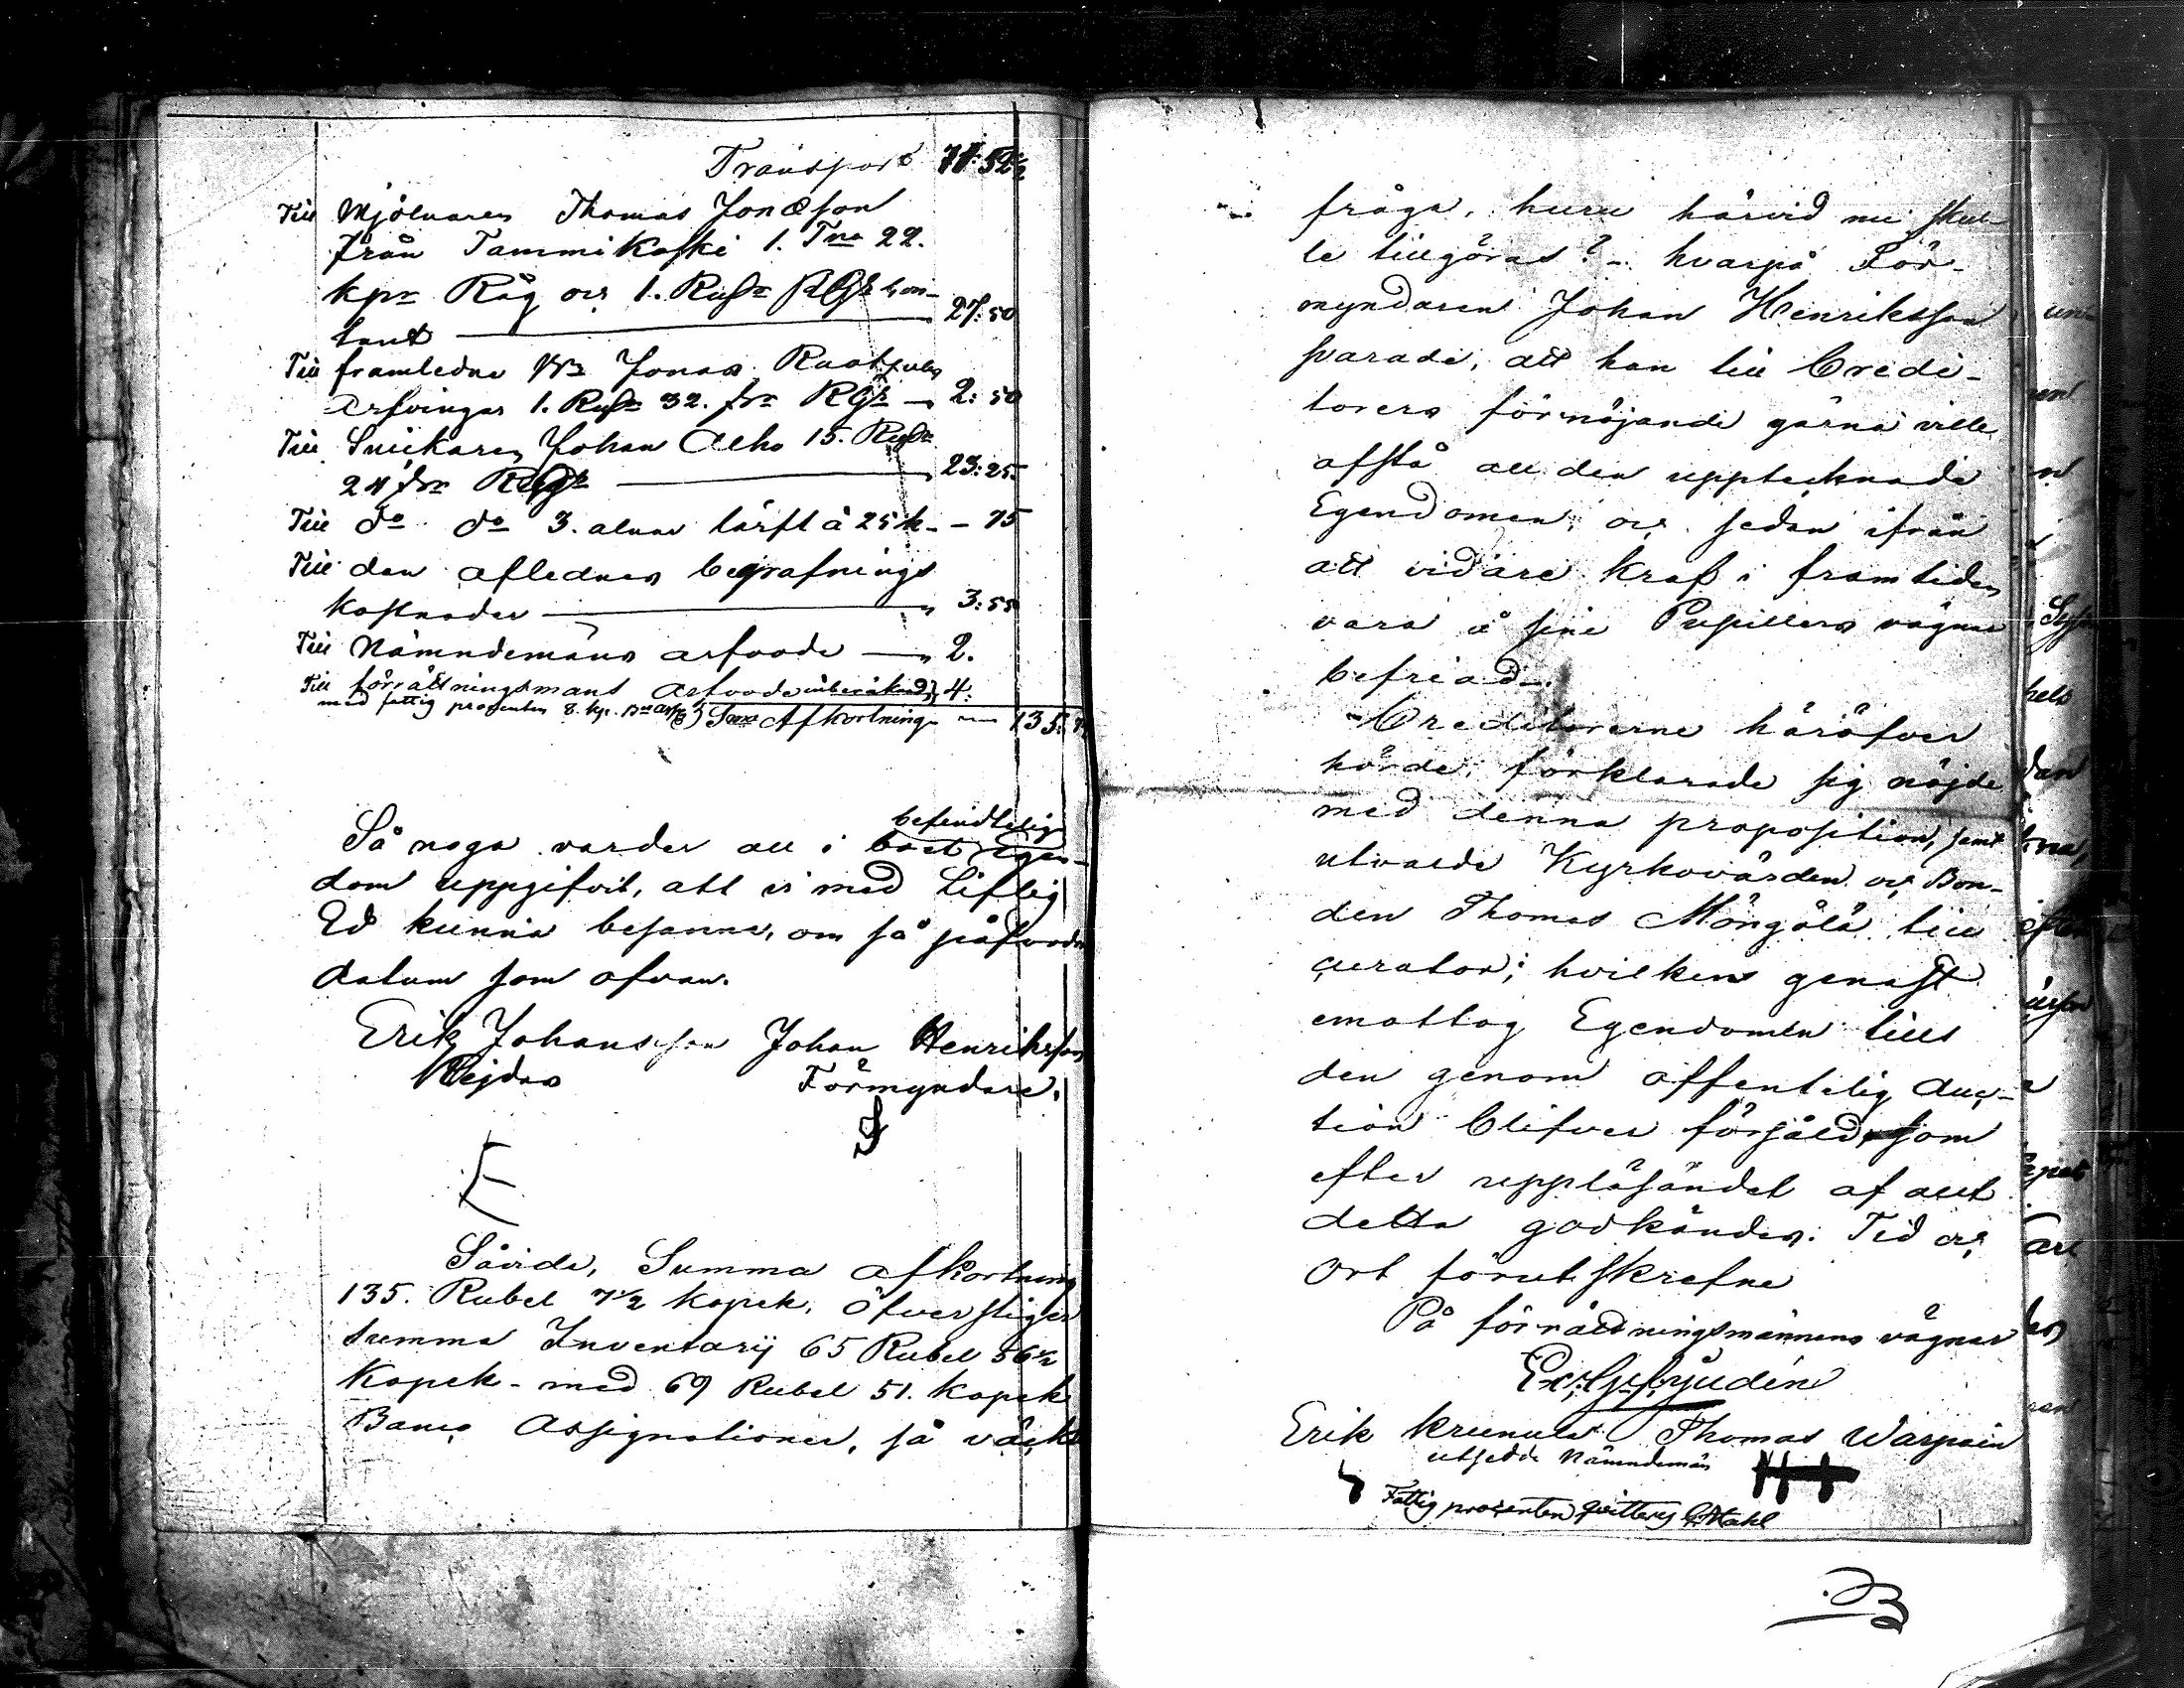 Transport 71:52½
Till Mjölnaren Thomas Jonasson
från Tammikoski 1. Tna 22.
kpr Råg och 1. Rubr RGs kon-
tant 27:50
Till framledne Jonas
Arfvingar 1. Rubr 32. sr RGs 2:50
Till Snickaren Johan Alho 15. Rubr
24 sr RGs 23:25
Till do do 3. alnar lärft à 25 k. - 75
Till den aflednes begrafnings
kostnader 3:55
Till Nämndemäns arfvode 2.
Till förrättningsmans Arfvode 4:
med fattig procenten 8. kp. Bco Sma Afkortning 135:
befindtelig
Så noga varder all i boet Egen-
dom uppgifvit, att vi med Liflig
Ed kunna besanna, om så påfordras
datum som ofvan.
Erik Johansson Johan Henriksson
Förmyndare.
Såvida, Summa afkortning
135. Rubel 7½ kopek, öfverstiger
summa Inventarij 65 Rubel 56½
Kopek - med 69 Rubel 51. kopek
Banco Assignationer, så väckt
fråga, huru härvid nu skul-
le tillgöras? - hvarpå För-
myndaren Johan Henriksson
svarade, att han till Credi-
torers förnöjande gärna ville
afstå all den upptecknade
Egendomen, och sedan ifrån
allt vidare kraf i framtiden
vara å sine Pupillers vägnar
befriad.
Creditorerne häröfver
hörde, förklarade sig nöjde
med denna proposition, samt
utvalde Kyrkovärden och Bon-
den Thomas Mängälä till
curator; hvilken genast
emottog Egendomen tills
den genom offentelig Auc-
tion blifver försåld, som
efter uppläsandet af allt
detta godkändes. Tid och
Ort förutskrefne
På förrättningsmännens vägnar
Erik Thomas
utsedde Nämndemän
Fattig procenten qvitteras